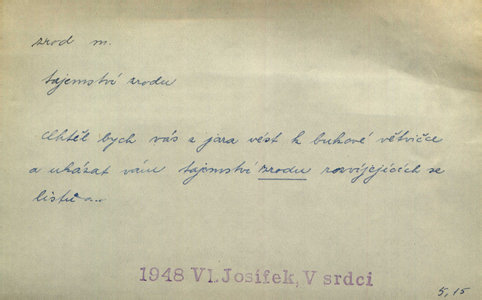 zrod m.
tajemství zrodu
Chtěl bych vás z jara vést k bukové větvičce
a ukázat vám tajemství zrodu rozvíjejících se
listů...
1948 VI. Josífek, V srdci
5,15